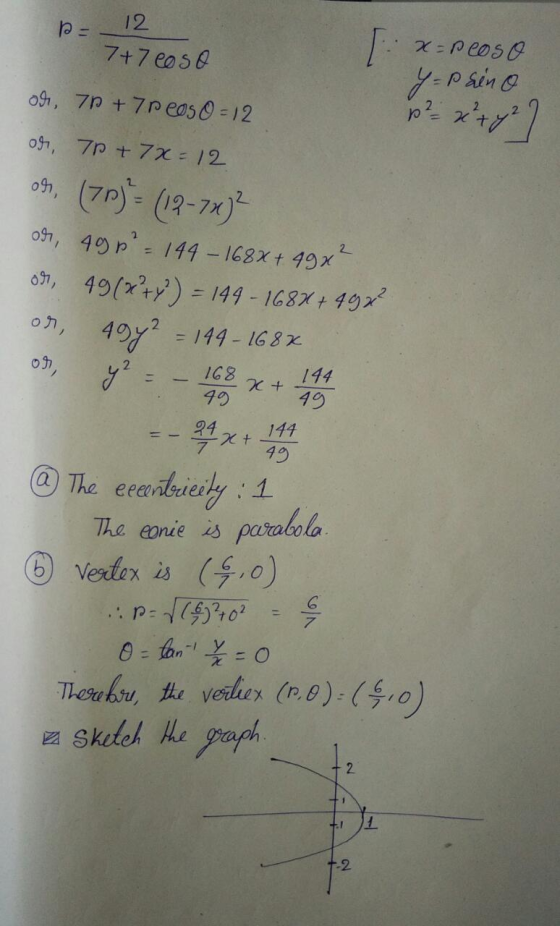 r = 12 / (7+7cosθ) [∵ x = rcosθ
y = r sinθ
r² = x²+y²]
or, 7r + 7rcosθ = 12
or, 7r + 7x = 12
or, (7r)² = (12-7x)²
or, 49r² = 144 - 168x + 49x²
or, 49(x²+y²) = 144 - 168x + 49x²
or, 49y² = 144 - 168x
or, y² = - 168/49 x + 144/49
= - 24/7 x + 144/49
(a) The eccentricity : 1
The conic is parabola.
(b) Vertex is (6/7, 0)
∴ r = √((6/7)²+0²) = 6/7
θ = tan⁻¹ y/x = 0
Therefore, the vertex (r, θ) = (6/7, 0)
Sketch the graph.
2
1
1
-1
-2